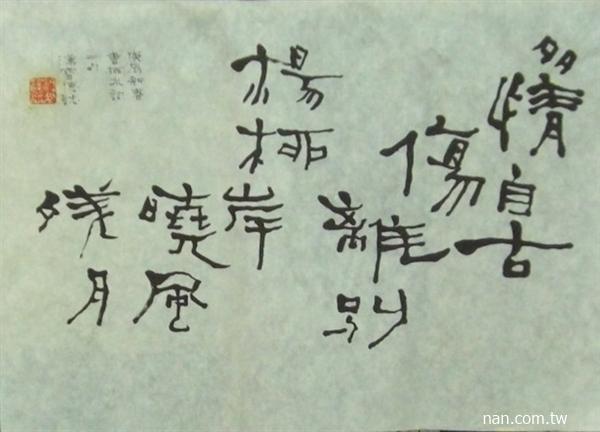 多情自古
傷離別
楊柳岸
曉風
殘月
nan.com.tw